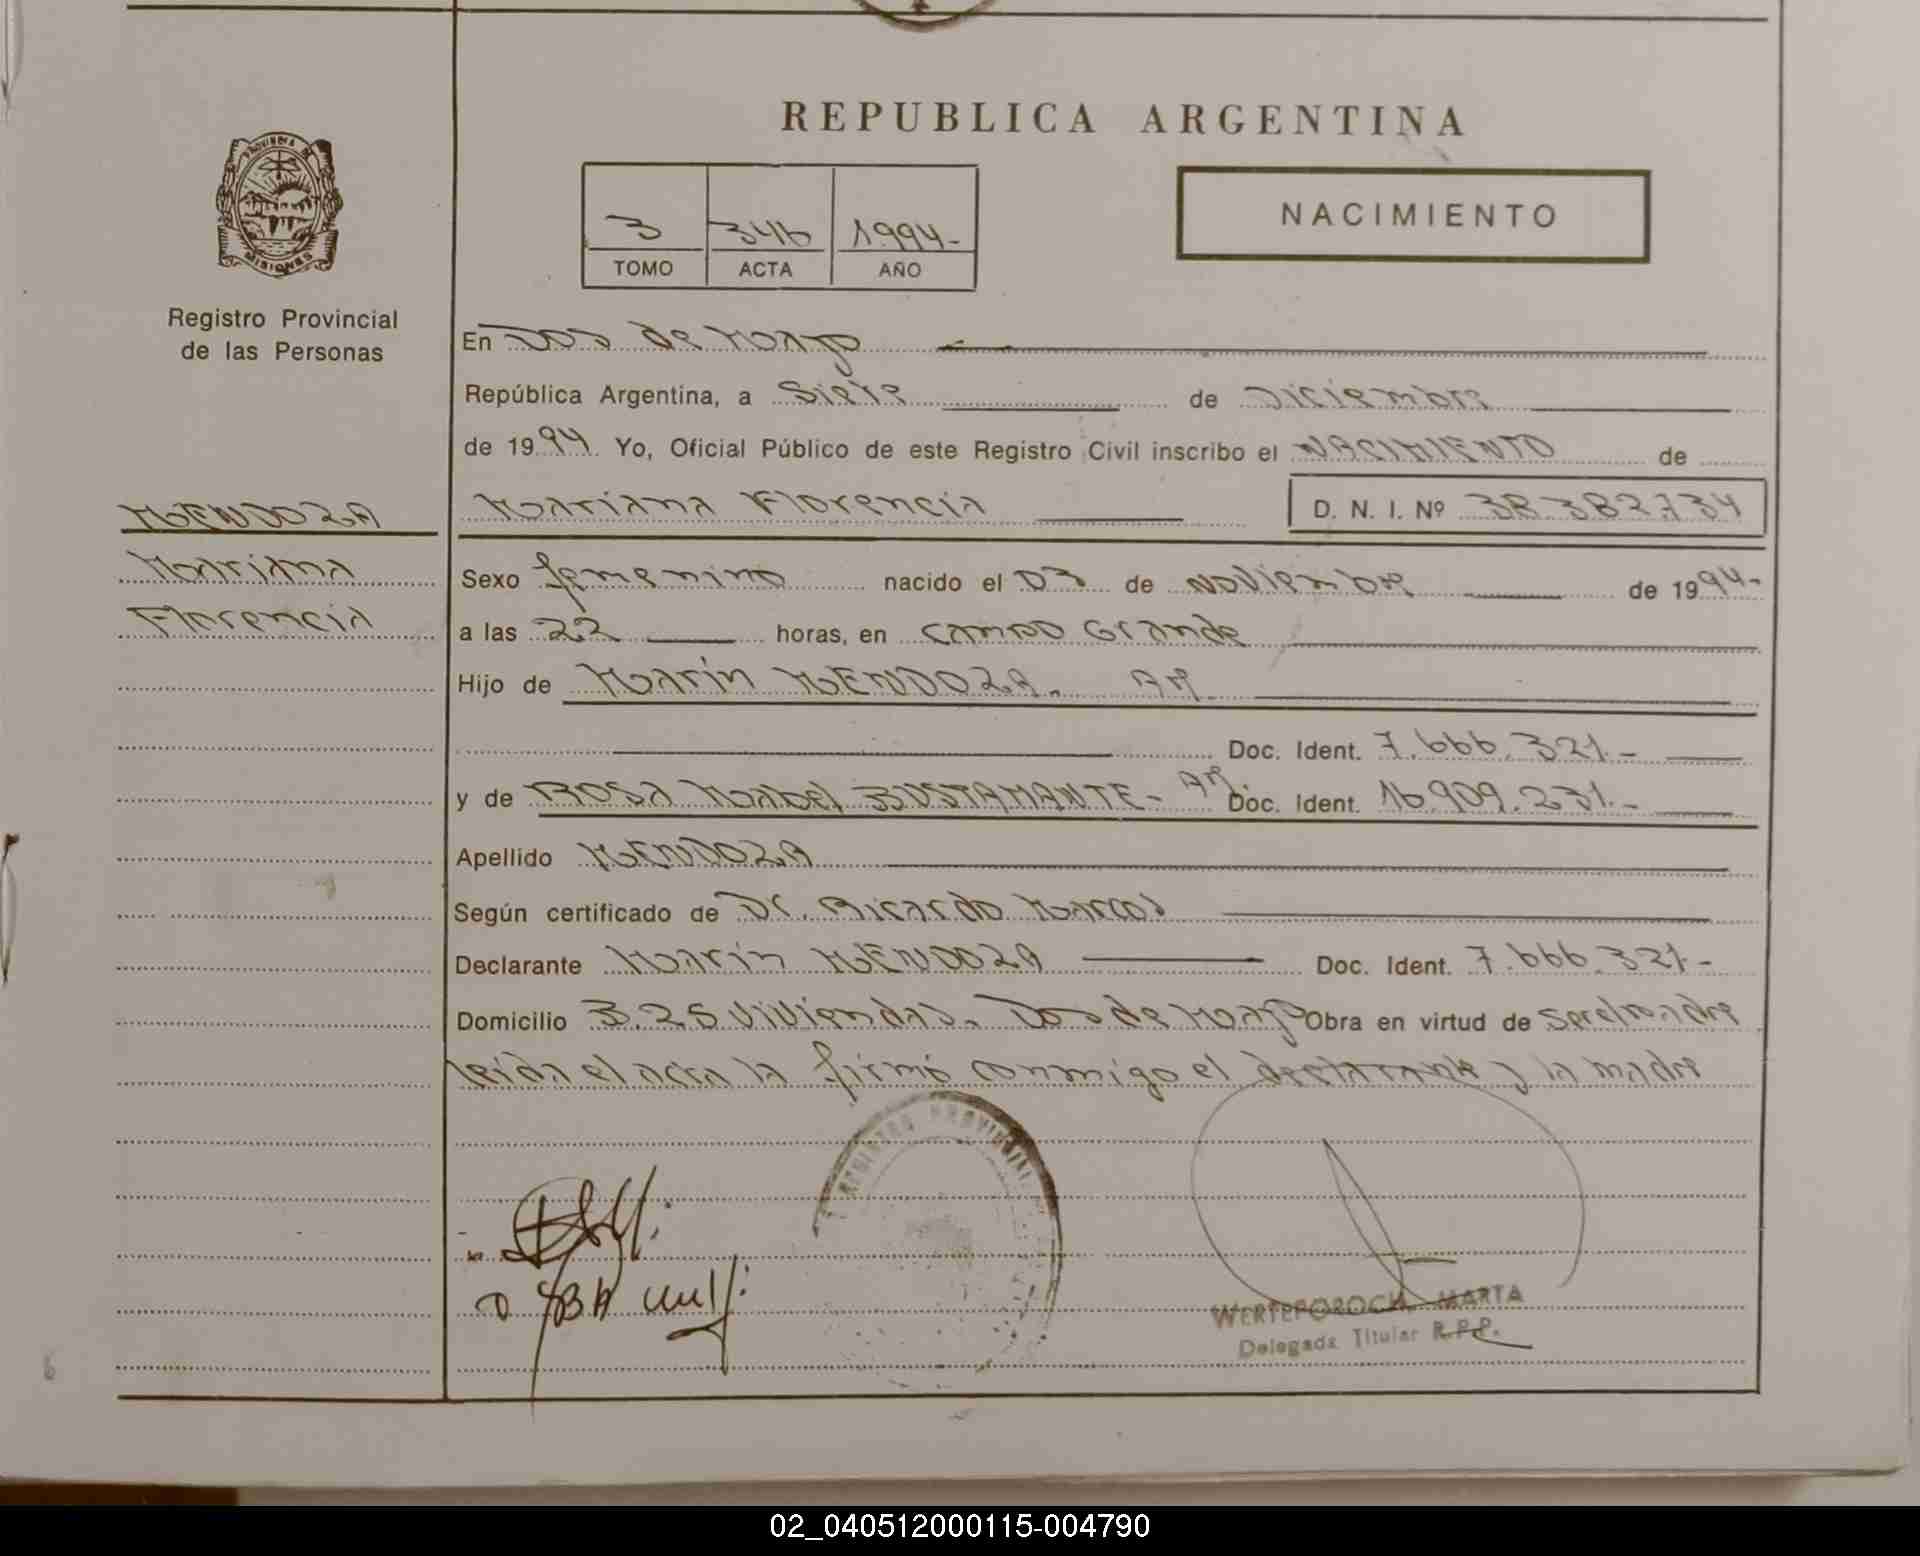 REPUBLICA ARGENTINA
PROVINCIA DE
MISIONES
Registro Provincial
de las Personas
3 346 1994-
TOMO ACTA AÑO
NACIMIENTO
En Dos de Mayo
República Argentina, a Siete de Diciembre
de 1994. Yo, Oficial Público de este Registro Civil inscribo el NACIMIENTO de
Mariana Florencia D. N. I. Nº 38382734
MENDOZA
Mariana
Florencia
Sexo femenino nacido el 03 de Noviembre de 1994-
a las 22 horas, en Campo Grande
Hijo de Marín MENDOZA.
Doc. Ident. 7.666.321.-
y de Rosa Mabel BUSTAMANTE- Doc. Ident. 16.909.231.-
Apellido MENDOZA
Según certificado de Dr. Ricardo Marcos
Declarante Marín MENDOZA Doc. Ident. 7.666.321-
Domicilio 325 Viviendas. Dos de Mayo Obra en virtud de ser el padre
leída el acta la firmó conmigo el declarante y la madre
REGISTRO PROVINCIAL
WERTEPOROCH MARTA
Delegada Titular R.P.P.
02_040512000115-004790